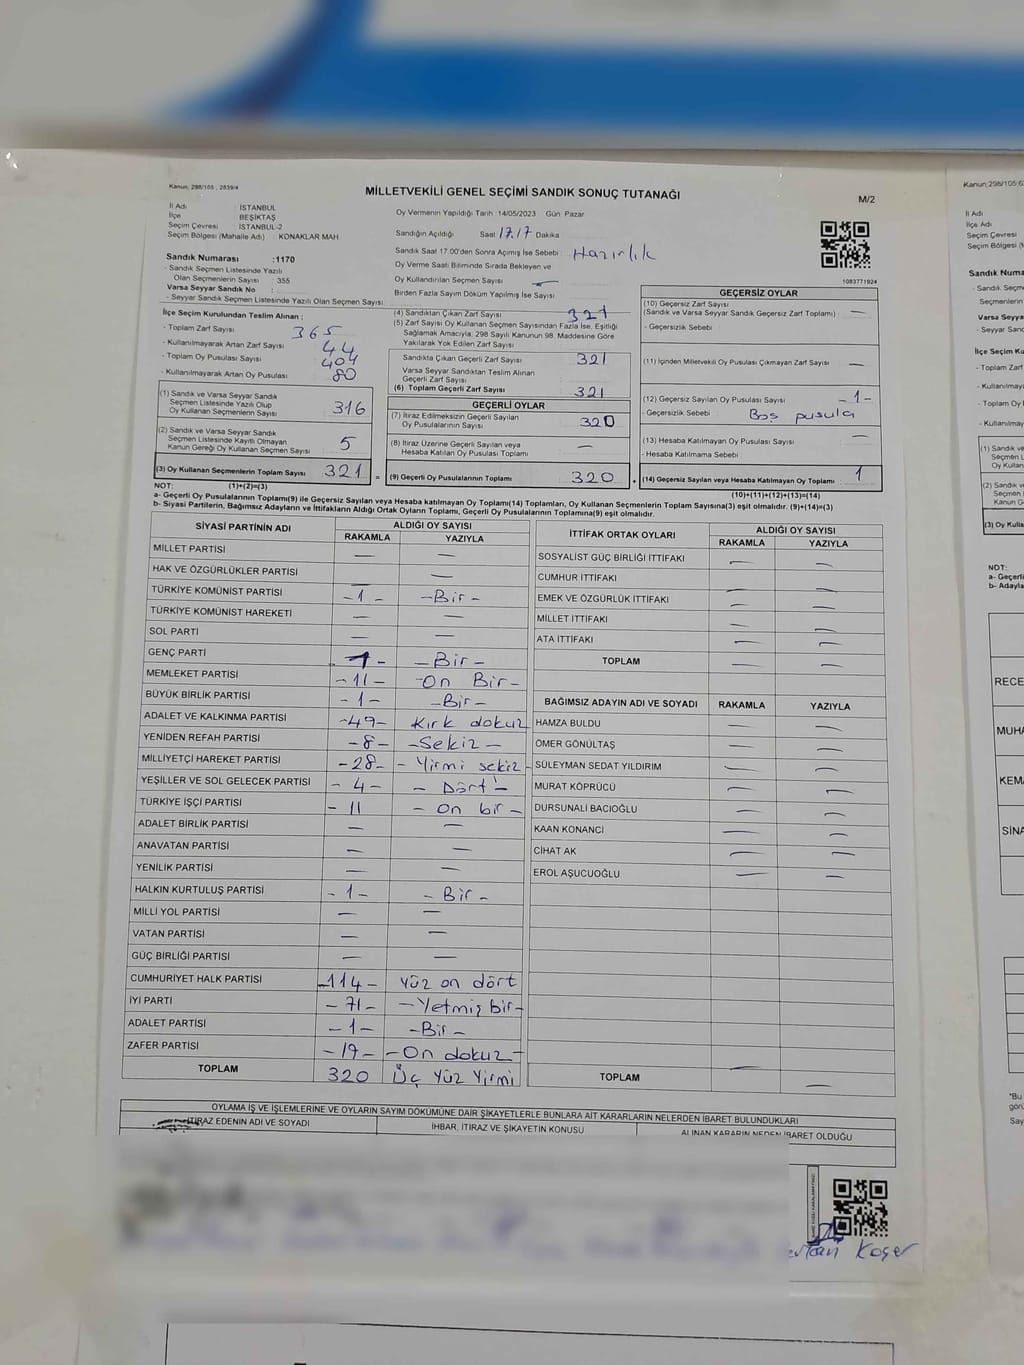 Kanun; 298/105 , 2839/4
MİLLETVEKİLİ GENEL SEÇİMİ SANDIK SONUÇ TUTANAĞI
M/2
İl Adı : İSTANBUL
İlçe BEŞİKTAŞ
Seçim Çevresi : İSTANBUL-2
Seçim Bölgesi (Mahalle Adı) : KONAKLAR MAH.
Oy Vermenin Yapıldığı Tarih :14/05/2023 Gün :Pazar
Sandığın Açıldığı Saat :17:17 Dakika
Sandık Saat 17:00'den Sonra Açımış İse Sebebi : Hazırlık
Oy Verme Saati Bitiminde Sırada Bekleyen ve
Oy Kullandırılan Seçmen Sayısı : —
Birden Fazla Sayım Döküm Yapılmış İse Sayısı :
Sandık Numarası :1170
- Sandık Seçmen Listesinde Yazılı
Olan Seçmenlerin Sayısı : 355
Varsa Seyyar Sandık No :
- Seyyar Sandık Seçmen Listesinde Yazılı Olan Seçmen Sayısı:
1083771924
İlçe Seçim Kurulundan Teslim Alınan ;
- Toplam Zarf Sayısı : 365
- Kullanılmayarak Artan Zarf Sayısı : 44
- Toplam Oy Pusulası Sayısı : 404
- Kullanılmayarak Artan Oy Pusulası : 80
(1) Sandık ve Varsa Seyyar Sandık
Seçmen Listesinde Yazılı Olup
Oy Kullanan Seçmenlerin Sayısı : 316
(2) Sandık ve Varsa Seyyar Sandık
Seçmen Listesinde Kayıtlı Olmayan
Kanun Gereği Oy Kullanan Seçmen Sayısı : 5
(3) Oy Kullanan Seçmenlerin Toplam Sayısı : 321 =
(4) Sandıktan Çıkan Zarf Sayısı : 321
(5) Zarf Sayısı Oy Kullanan Seçmen Sayısından Fazla İse, Eşitliği
Sağlamak Amacıyla; 298 Sayılı Kanunun 98. Maddesine Göre
Yakılarak Yok Edilen Zarf Sayısı :
Sandıkta Çıkan Geçerli Zarf Sayısı : 321
Varsa Seyyar Sandıktan Teslim Alınan
Geçerli Zarf Sayısı :
(6) Toplam Geçerli Zarf Sayısı : 321
GEÇERLİ OYLAR
(7) İtiraz Edilmeksizin Geçerli Sayılan
Oy Pusulalarının Sayısı : 320
(8) İtiraz Üzerine Geçerli Sayılan veya
Hesaba Katılan Oy Pusulası Toplamı : —
(9) Geçerli Oy Pusulalarının Toplamı : 320 +
GEÇERSİZ OYLAR
(10) Geçersiz Zarf Sayısı
(Sandık ve Varsa Seyyar Sandık Geçersiz Zarf Toplamı) : —
- Geçersizlik Sebebi :
(11) İçinden Milletvekili Oy Pusulası Çıkmayan Zarf Sayısı : —
(12) Geçersiz Sayılan Oy Pusulası Sayısı : -1-
- Geçersizlik Sebebi : Boş pusula
(13) Hesaba Katılmayan Oy Pusulası Sayısı : —
- Hesaba Katılmama Sebebi :
(14) Geçersiz Sayılan veya Hesaba Katılmayan Oy Toplamı : 1
NOT: (1)+(2)=(3) (10)+(11)+(12)+(13)=(14)
a- Geçerli Oy Pusulalarının Toplamı(9) ile Geçersiz Sayılan veya Hesaba katılmayan Oy Toplamı(14) Toplamları, Oy Kullanan Seçmenlerin Toplam Sayısına(3) eşit olmalıdır. (9)+(14)=(3)
b- Siyasi Partilerin, Bağımsız Adayların ve İttifakların Aldığı Ortak Oyların Toplamı, Geçerli Oy Pusulalarının Toplamına(9) eşit olmalıdır.
SİYASİ PARTİNİN ADI ALDIĞI OY SAYISI
RAKAMLA YAZIYLA
MİLLET PARTİSİ — —
HAK VE ÖZGÜRLÜKLER PARTİSİ — —
TÜRKİYE KOMÜNİST PARTİSİ -1- -Bir-
TÜRKİYE KOMÜNİST HAREKETİ — —
SOL PARTİ — —
GENÇ PARTİ -1- -Bir-
MEMLEKET PARTİSİ -11- -On Bir-
BÜYÜK BİRLİK PARTİSİ -1- -Bir-
ADALET VE KALKINMA PARTİSİ -49- Kırk dokuz
YENİDEN REFAH PARTİSİ -8- -Sekiz-
MİLLİYETÇİ HAREKET PARTİSİ -28- -Yirmi sekiz-
YEŞİLLER VE SOL GELECEK PARTİSİ -4- -Dört-
TÜRKİYE İŞÇİ PARTİSİ -11 -On bir-
ADALET BİRLİK PARTİSİ — —
ANAVATAN PARTİSİ — —
YENİLİK PARTİSİ — —
HALKIN KURTULUŞ PARTİSİ -1- -Bir-
MİLLİ YOL PARTİSİ — —
VATAN PARTİSİ — —
GÜÇ BİRLİĞİ PARTİSİ — —
CUMHURİYET HALK PARTİSİ -114- Yüz on dört
İYİ PARTİ -71- -Yetmiş bir-
ADALET PARTİSİ -1- -Bir-
ZAFER PARTİSİ -19- -On dokuz-
TOPLAM 320 Üç Yüz Yirmi
İTTİFAK ORTAK OYLARI ALDIĞI OY SAYISI
RAKAMLA YAZIYLA
SOSYALİST GÜÇ BİRLİĞİ İTTİFAKI — —
CUMHUR İTTİFAKI — —
EMEK VE ÖZGÜRLÜK İTTİFAKI — —
MİLLET İTTİFAKI — —
ATA İTTİFAKI — —
TOPLAM — —
BAĞIMSIZ ADAYIN ADI VE SOYADI RAKAMLA YAZIYLA
HAMZA BULDU — —
ÖMER GÖNÜLTAŞ — —
SÜLEYMAN SEDAT YILDIRIM — —
MURAT KÖPRÜCÜ — —
DURSUNALİ BACIOĞLU — —
KAAN KONANCİ — —
CİHAT AK — —
EROL AŞUCUOĞLU — —
TOPLAM — —
OYLAMA İŞ VE İŞLEMLERİNE VE OYLARIN SAYIM DÖKÜMÜNE DAİR ŞİKAYETLERLE BUNLARA AİT KARARLARIN NELERDEN İBARET BULUNDUKLARI
İTİRAZ EDENİN ADI VE SOYADI İHBAR, İTİRAZ VE ŞİKAYETİN KONUSU ALINAN KARARIN NEDEN İBARET OLDUĞU
Koşer
Kanun;298/105;6
İl Adı
İlçe Adı
Seçim Çevresi
Seçim Bölgesi (M
Sandık Numara
- Sandık Seçme
Seçmenlerin
Varsa Seyya
- Seyyar Sand
İlçe Seçim Ku
- Toplam Zarf
- Kullanılmaya
- Toplam O
- Kullanılmay
(1) Sandık ve
Seçmen L
Oy Kullan
(2) Sandık ve
Seçmen
Kanun G
(3) Oy Kulla
NOT:
a- Geçerli
b- Adayla
RECE
MUHA
KEMA
SİNA
*Bu
Say